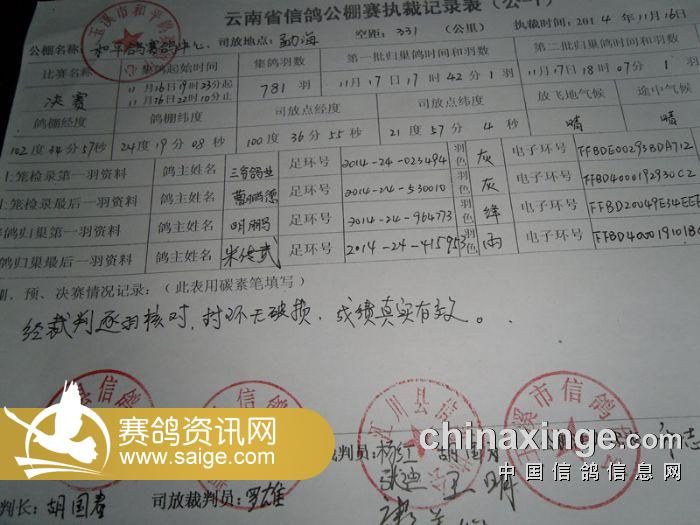 云南省信鸽公棚赛执裁记录表（公-1）
公棚名称：和平鸽赛鸽中心 司放地点：勐海 空距：331（公里） 执裁时间：2014年11月16日
比赛名称 集鸽起始时间 集鸽羽数 第一批归巢鸽时间和羽数 最后一批归巢鸽时间和羽数
决赛 11月16日19时23分起 781羽 11月17日17时42分1羽 11月17日18时07分1羽
11月16日22时10分止
鸽棚经度 鸽棚纬度 司放点经度 司放点纬度 放飞地气候 途中气候
102度34分57秒 24度19分08秒 100度36分55秒 21度57分4秒 晴 晴
上笼检录第一羽资料 鸽主姓名 三合鸽业 足环号 2014-24-023494 羽色 灰 电子环号 FFBDE00293BDA712
上笼检录最后一羽资料 鸽主姓名 足环号 2014-24-530010 羽色 灰 电子环号 FFBD4000192930C2
鸽归巢第一羽资料 鸽主姓名 明鹏 足环号 2014-24-964773 羽色 绛 电子环号 FFBD20049E34EEF
鸽归巢最后一羽资料 鸽主姓名 朱传武 足环号 2014-24-415953 羽色 雨 电子环号 FFBD400019101BC
棚、预、决赛情况记录：（此表用碳素笔填写）
经裁判逐羽核对，封环无破损，成绩真实有效。
裁判员：杨红 胡国春
张迪 王明
判长：胡国春 司放裁判员：罗雄
玉溪市和平鸽赛鸽中心
玉溪市信鸽
川县信
赛鸽资讯网
www.saige.com
chinaxinge.com
中国信鸽信息网